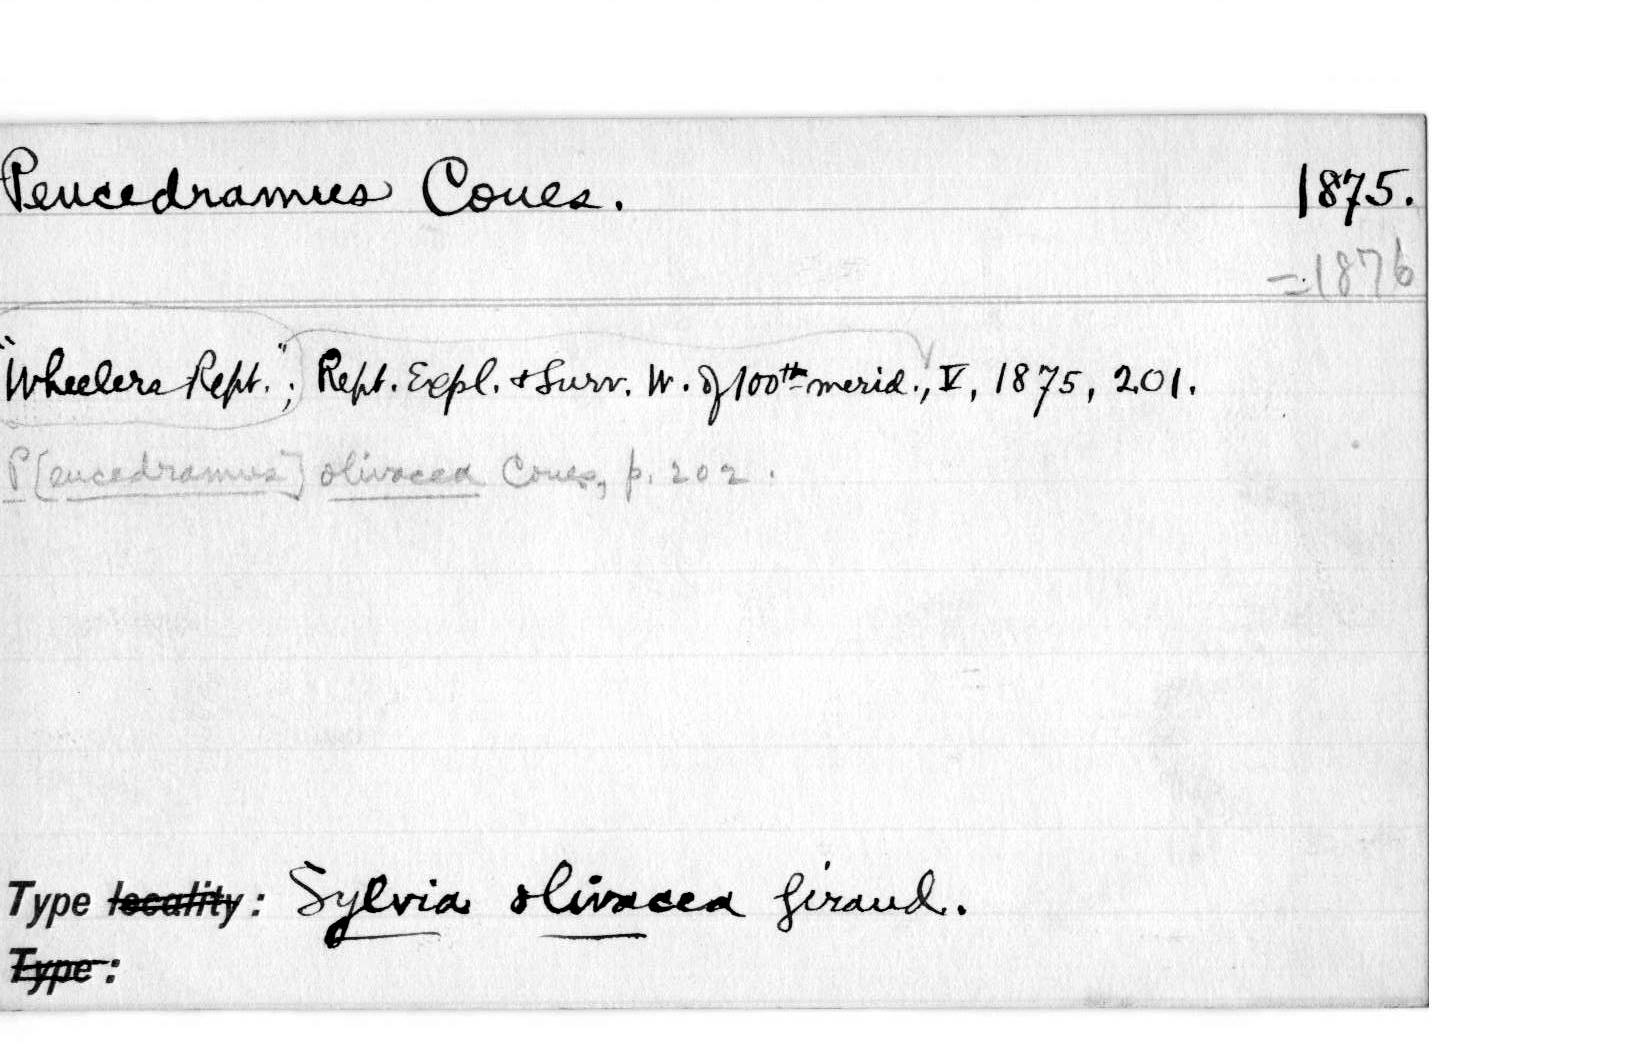 Peucedramus Coues. 1875.
=1876
"Wheelers Rept."; Rept. Expl. + Surv. W. of 100th merid., V, 1875, 201.
P[eucedramus] olivacea Coues, p. 202.
Type locality: Sylvia olivacea Giraud.
Type: